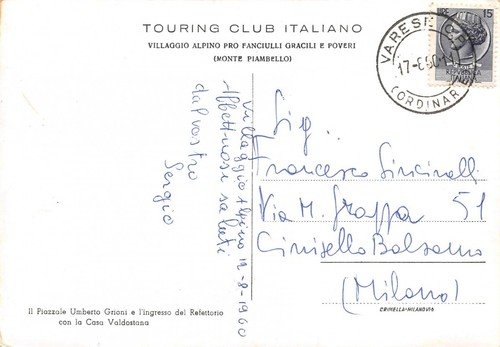 TOURING CLUB ITALIANO
VILLAGGIO ALPINO PRO FANCIULLI GRACILI E POVERI
(MONTE PIAMBELLO)
Villaggio Alpino 12-8-1960
Affettuosi saluti
dal vostro
Sergio
Il Piazzale Umberto Grioni e l'ingresso del Refettorio
con la Casa Valdostana
VARESE
17-8-60
(ORDINAR
15
Sig.
Francesco Sincinelli
Via M. Grappa 51
Cinisello Balsamo
(Milano)
CRIMELLA-MILANO